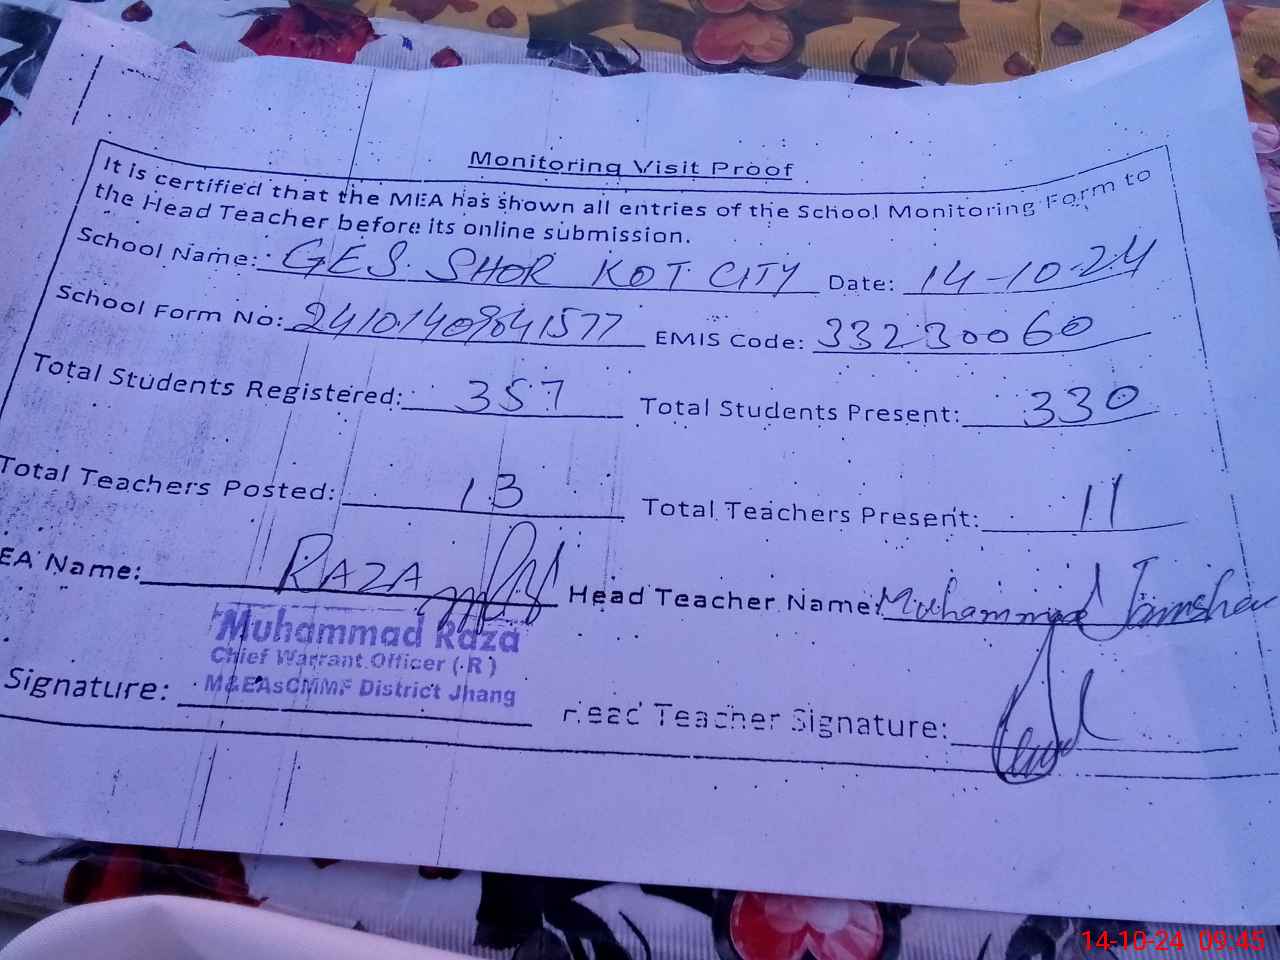 Monitoring Visit Proof
It is certified that the MEA has shown all entries of the School Monitoring Form to
the Head Teacher before its online submission.
School Name: GES SHOR KOT CITY Date: 14-10-24
School Form No: EMIS Code: 33230060
Total Students Registered: 357 Total Students Present: 330
Total Teachers Posted: 13 Total Teachers Present: 11
EA Name: RAZA Head Teacher Name: Muhammad
Muhammad Raza
Chief Warrant Officer (R)
M&EAsCMMF District Jhang
Signature: Head Teacher Signature:
14-10-24 09:45